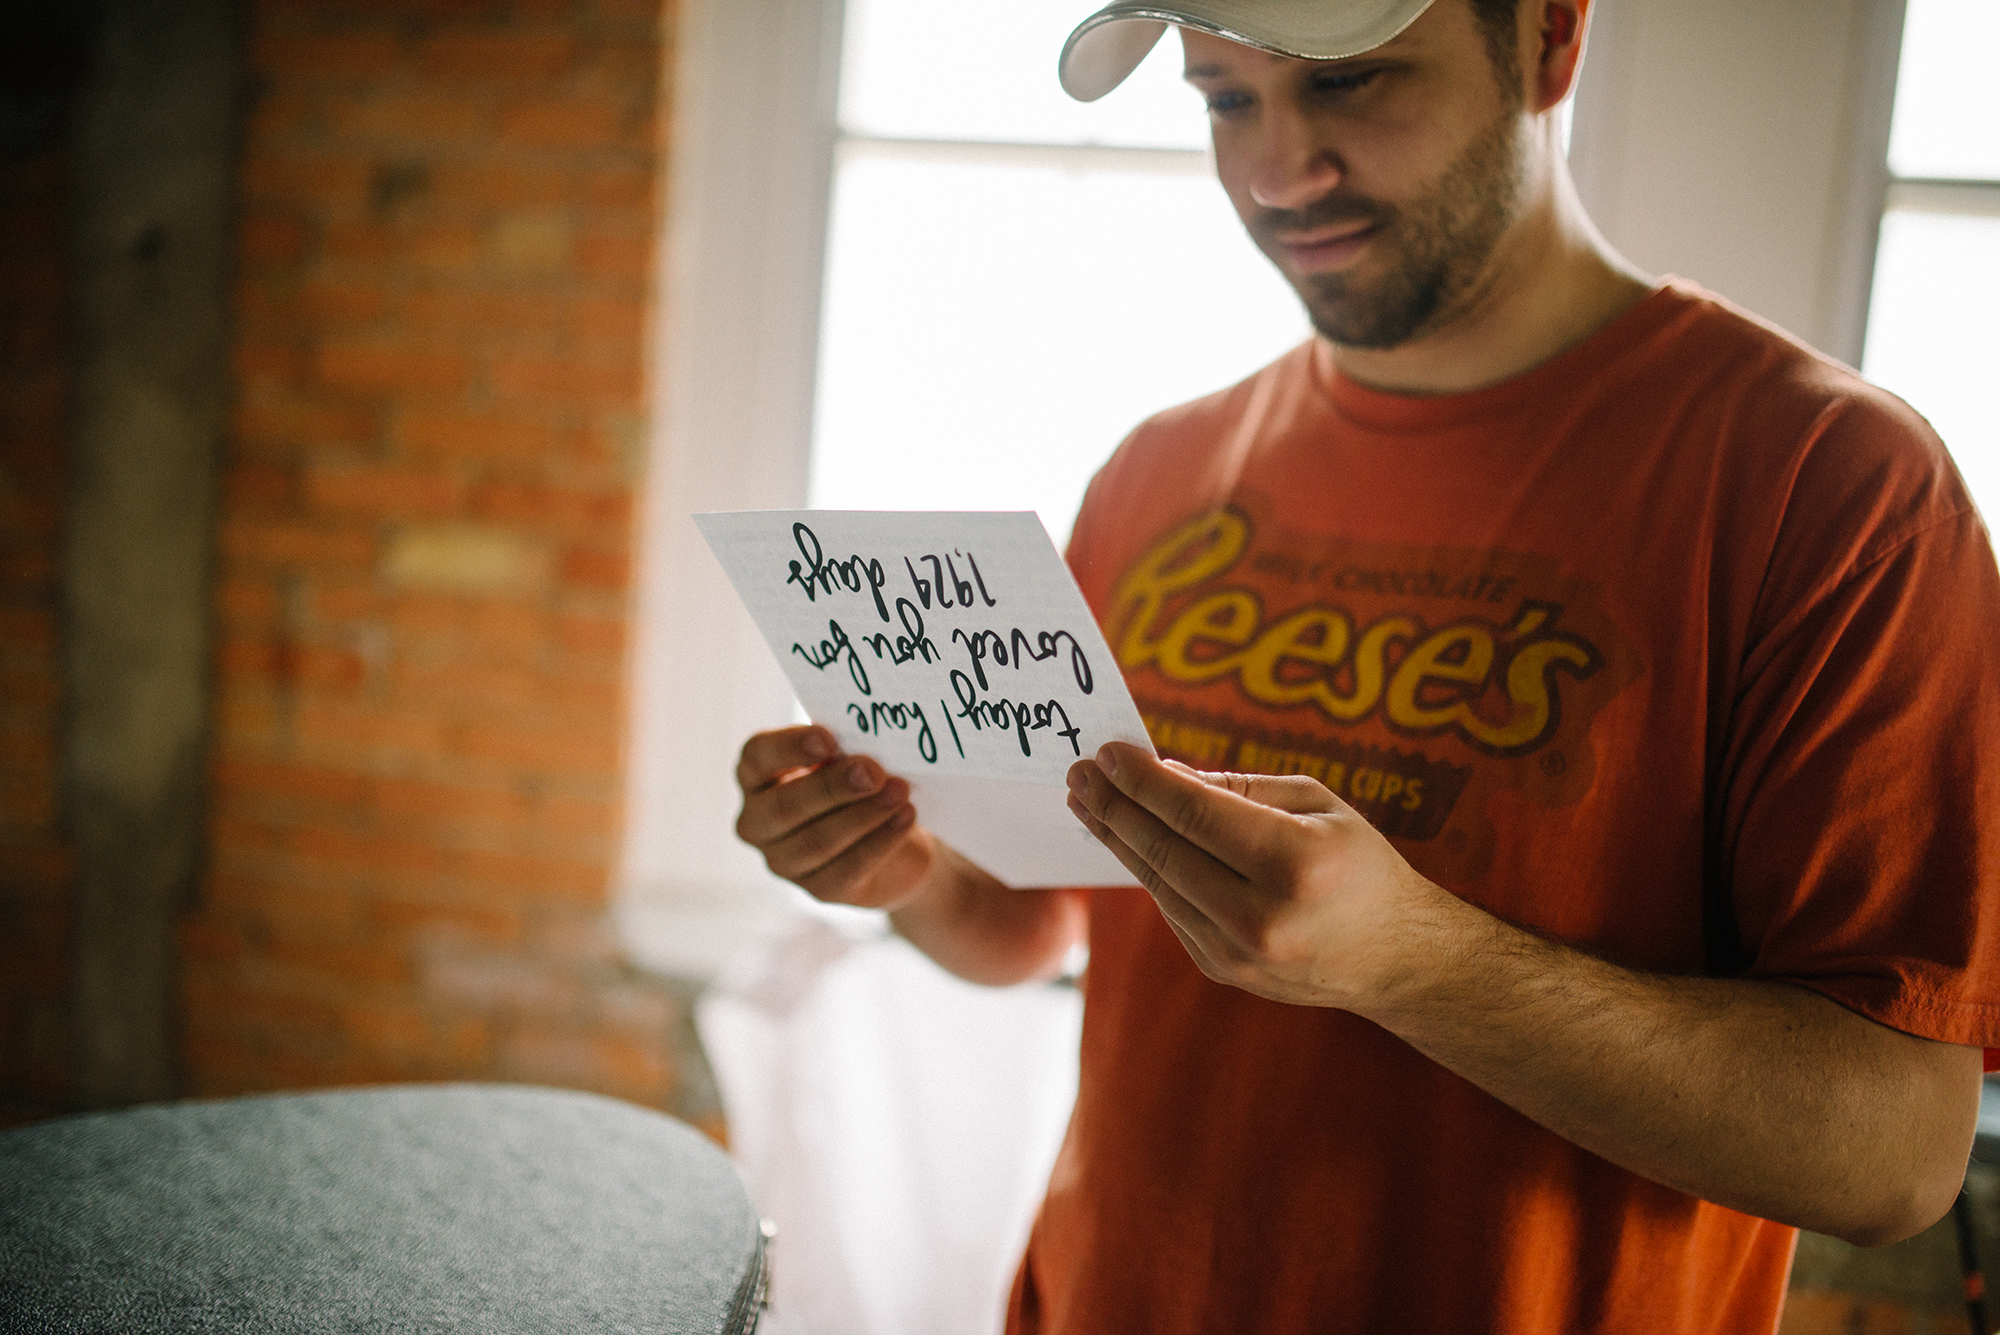 today I have
loved you for
1,929 days
MILK CHOCOLATE
Reese's
PEANUT BUTTER CUPS
®
®